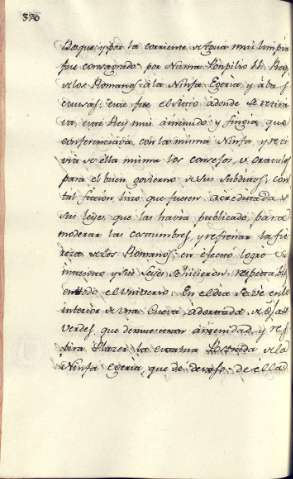 370
Bosque, y por la corriente de Agua mui limpia
fue consagrado por Numma Ponpilio II. Rey
de los Romanos à la Ninfa Egeria, y à las
era el sitio adonde se retira
va este Rey mui amenudo; y fingia que
conferenciava con la misma Ninfa, y reci
via de ella misma los consejos, u oraculos
para el buen govierno de sus Subditos; con
tal ficcion hizo que fuesen acreditadas
sus leyes, que las havia publicado, para
moderar las costumbres, y refrenar la fie
reza de los Romanos; en efecto logro su
intencion y sus Leyes se hicieron respetables
en todo el Universo. En el dia se ve en lo
interior de una Cueva adornada de
verdes, que demuestran amenidad, y res
pira Placer la estatua de la
Ninfa Egeria, que de devajo de ella